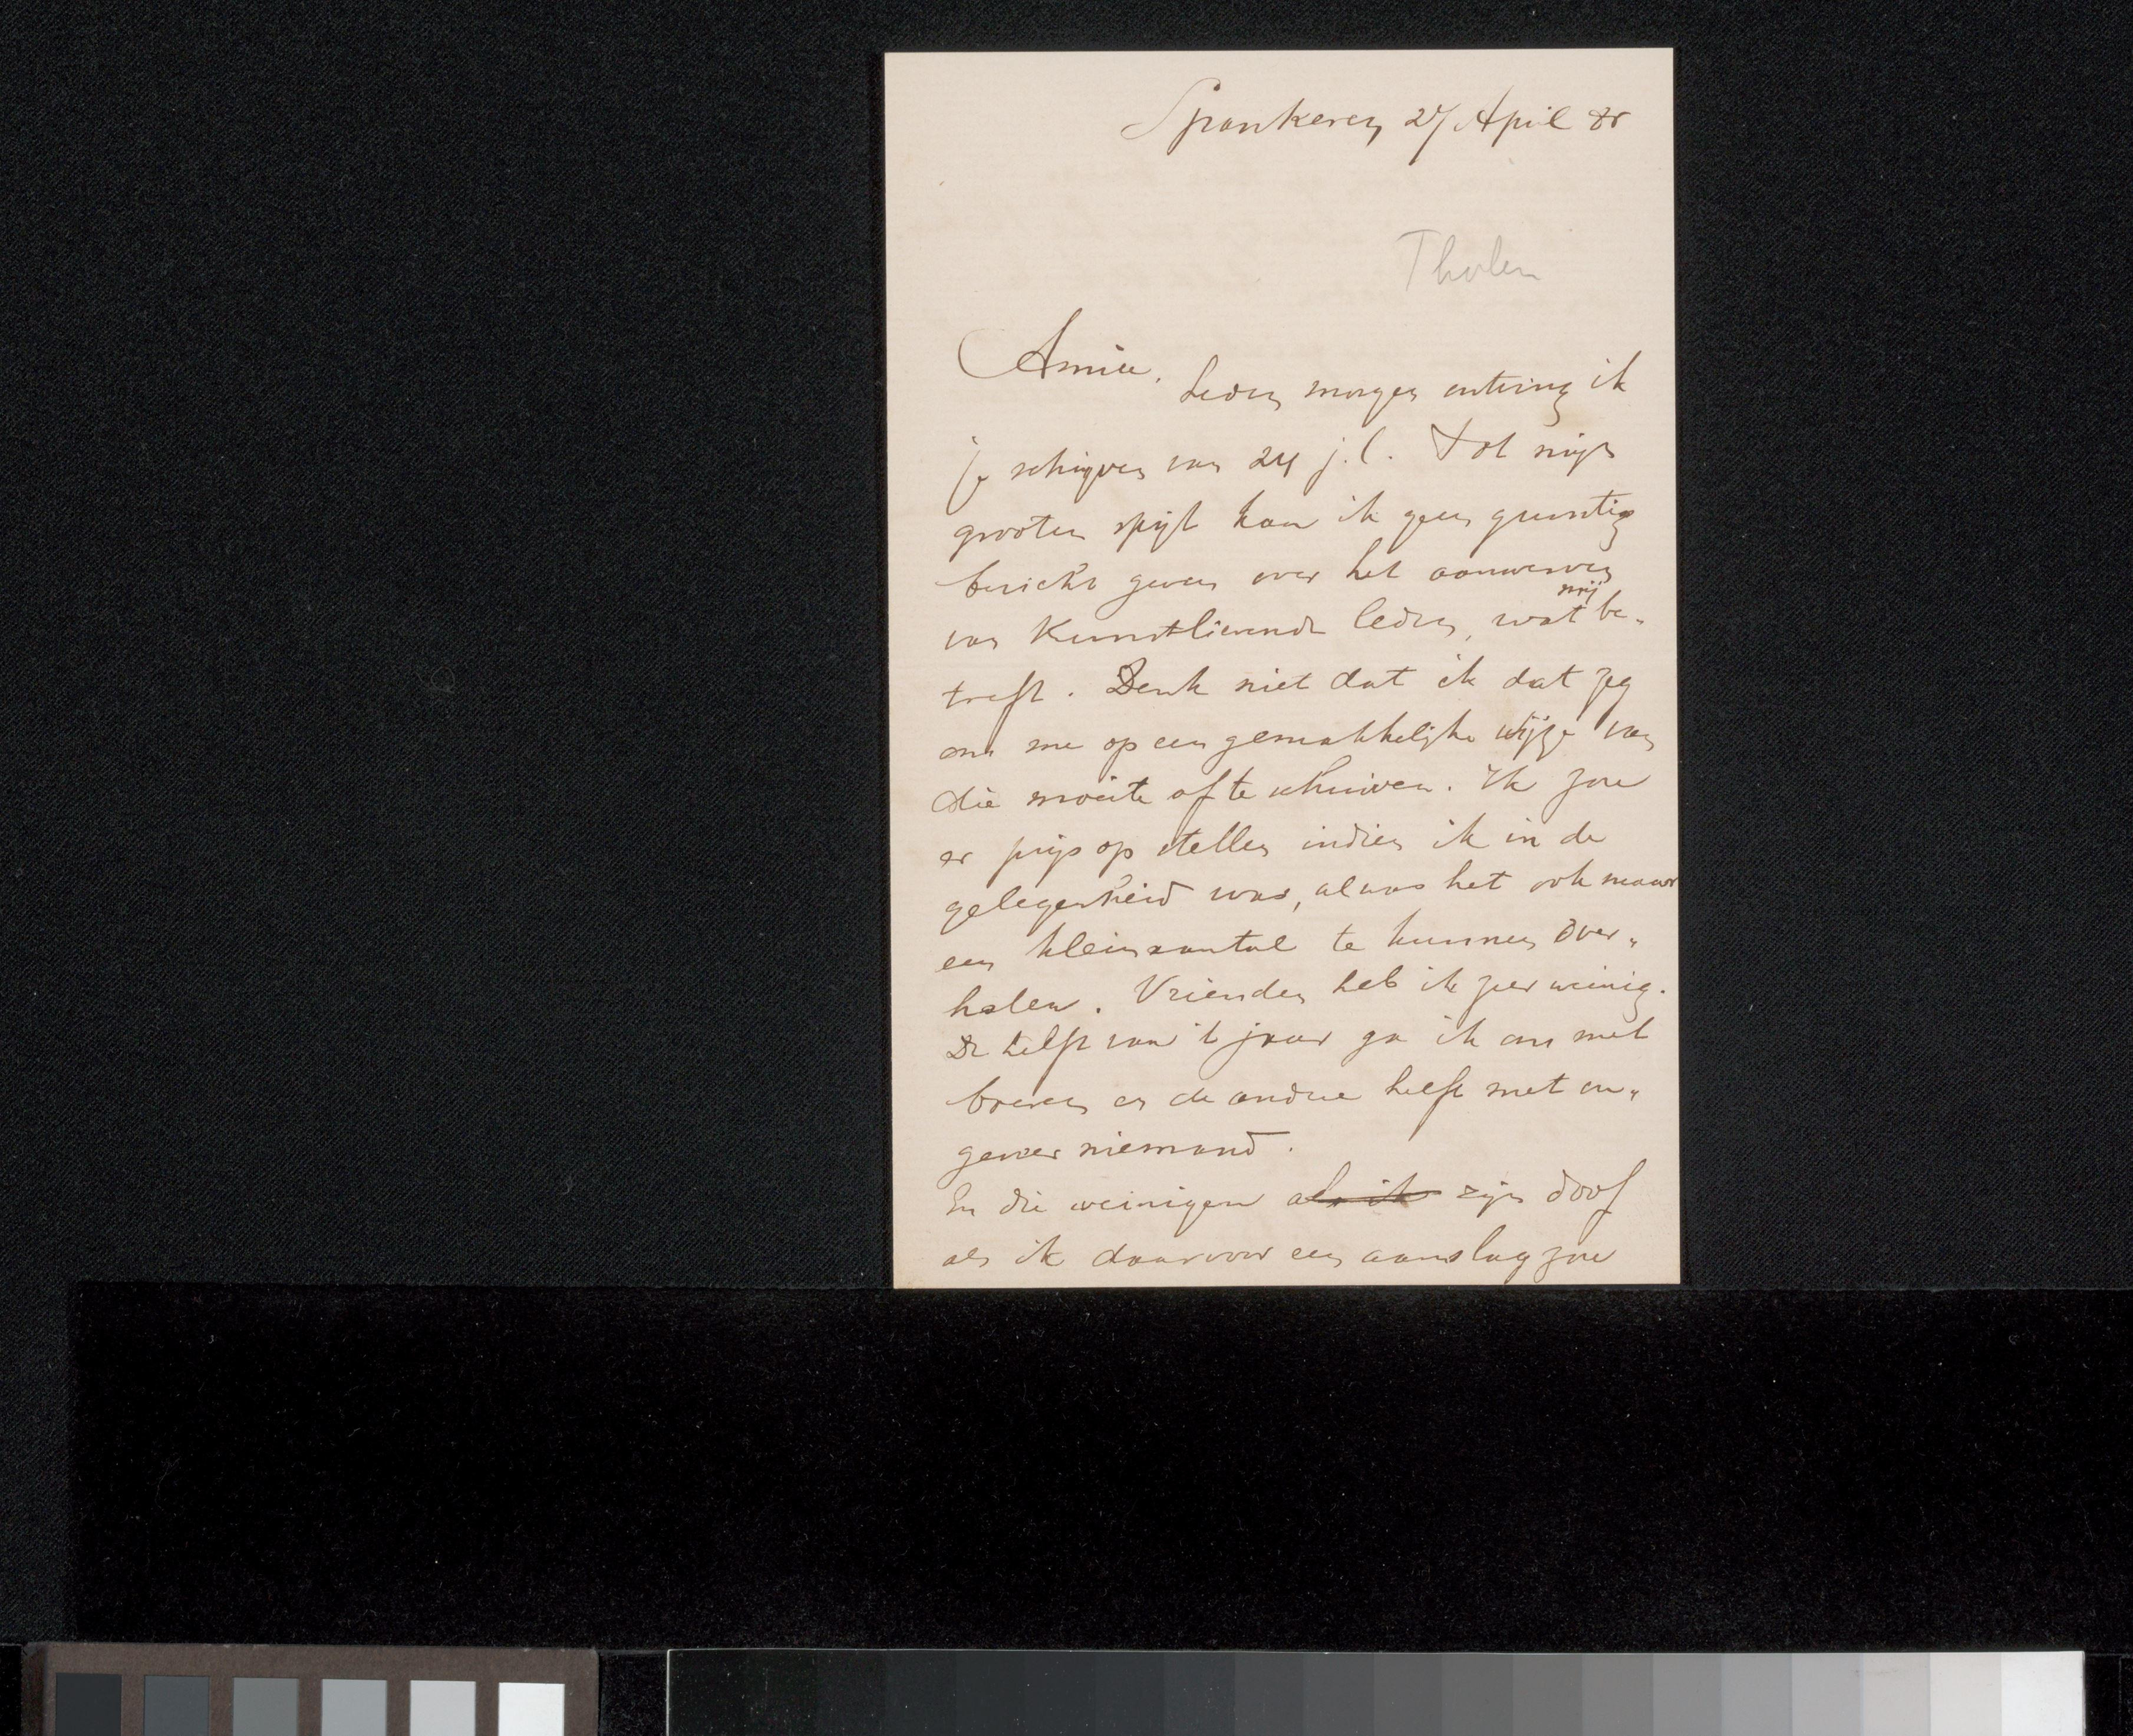 Spankeren 27 April 85
Tholen
Amice.
Heden morgen ontving ik
je schrijven van 24 j.l. Tot mijn
grooten spijt kan ik geen gunstig
bericht geven over het aanwerven
van Kunstlievende leden, wat mij be-
treft. Denk niet dat ik dat zeg
om me op een gemakkelijke wijze van
die moeite af te schuiven. Ik zou
er prijs op stellen indien ik in de
gelegenheid was, al was het ook maar
een klein aantal te kunnen over-
halen. Vrienden heb ik zeer weinig.
De helft van 't jaar ga ik om met
boeren en de andere helft met on-
geveer niemand.
En die weinigen als ik zijn doof
als ik daarvoor een aanslag zou